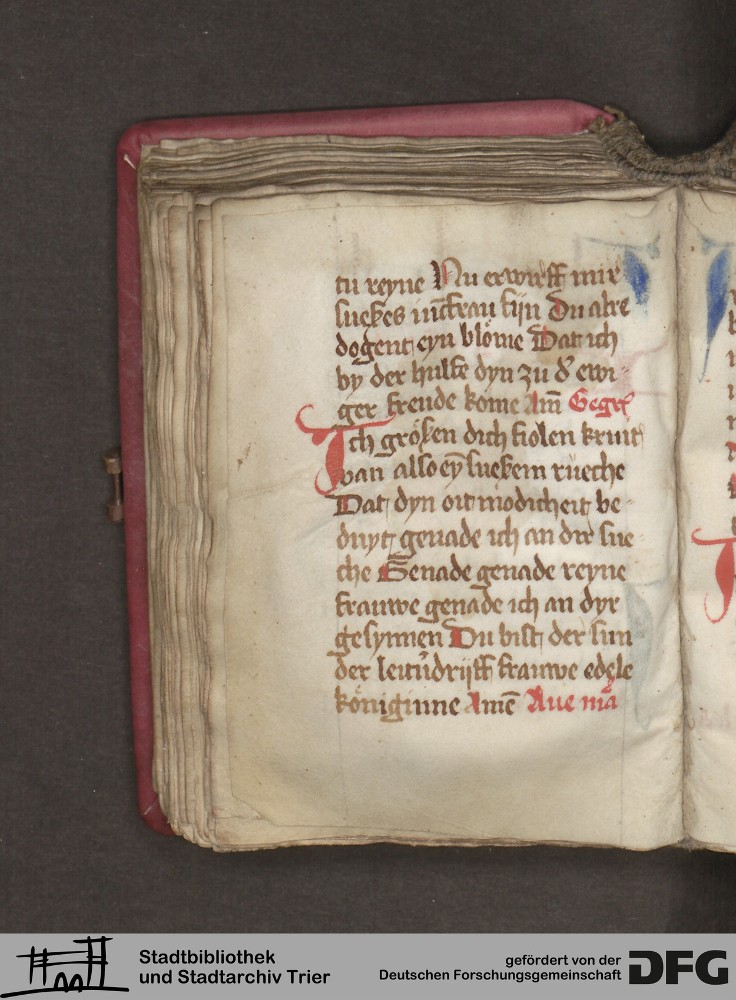 tu reyne Nu erwirff mir
sueßes iūcfrau fijn Du alre
dogent eyn blome Dat ich
by der hulfe dyn zu d' ewi-
ger freude kome Am̄ Gegr̄
Ich größen dich fiolen kruit
van also ey̅ sueßem rueche
Dat dyn oitmodicheit be-
duyt genade ich an dir sue-
che Genade genade reyne
frauwe genade ich an dyr
gesynnen Du bist der sun
der leituͦdrijff frauwe edele
königinne Amē Aue mͣa
Stadtbibliothek
und Stadtarchiv Trier
gefördert von der
Deutschen Forschungsgemeinschaft
DFG